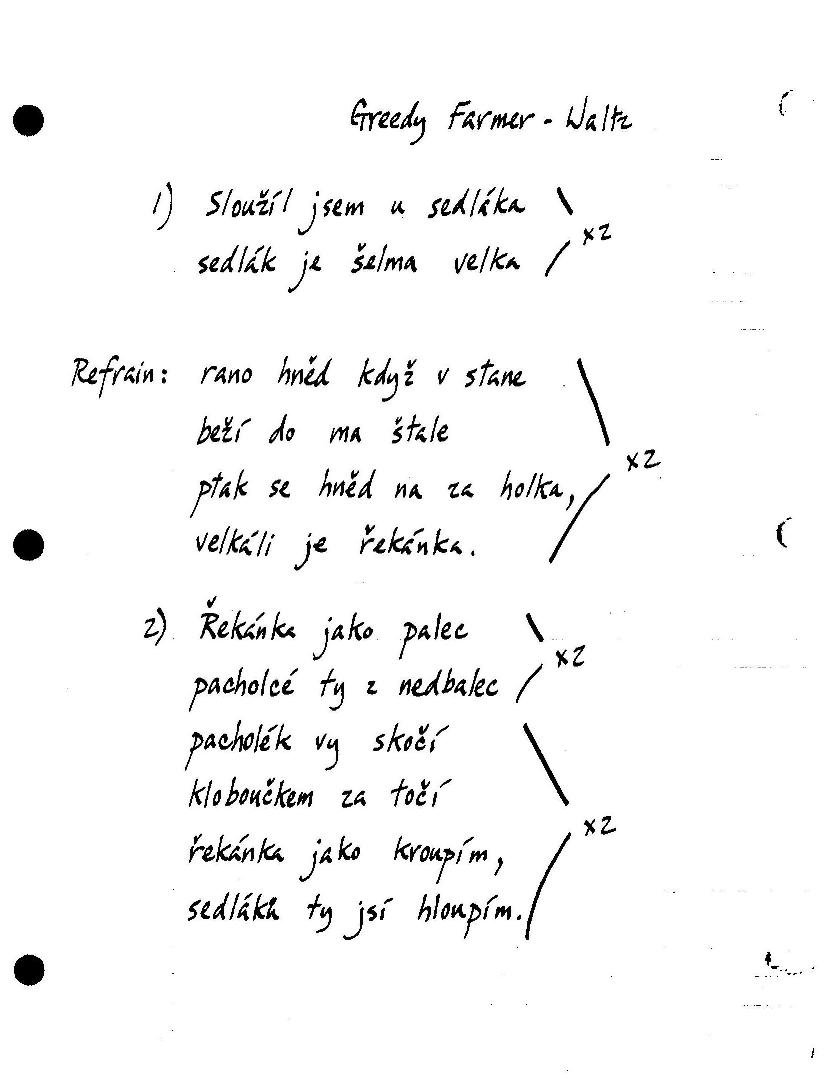 Greedy Farmer - Waltz
1) Sloužíl jsem u sedláka
sedlák je šelma velka x2
Refrain: rano hněd když v stane
beží do ma štale
ptak se hněd na za holka, x2
velkáli je řekánka.
2) Řekánka jako palec
pacholcé ty z nedbalec x2
pacholék vy skočí
kloboučkem za točí
řekánka jako kroupím, x2
sedláků ty jsí hloupím.